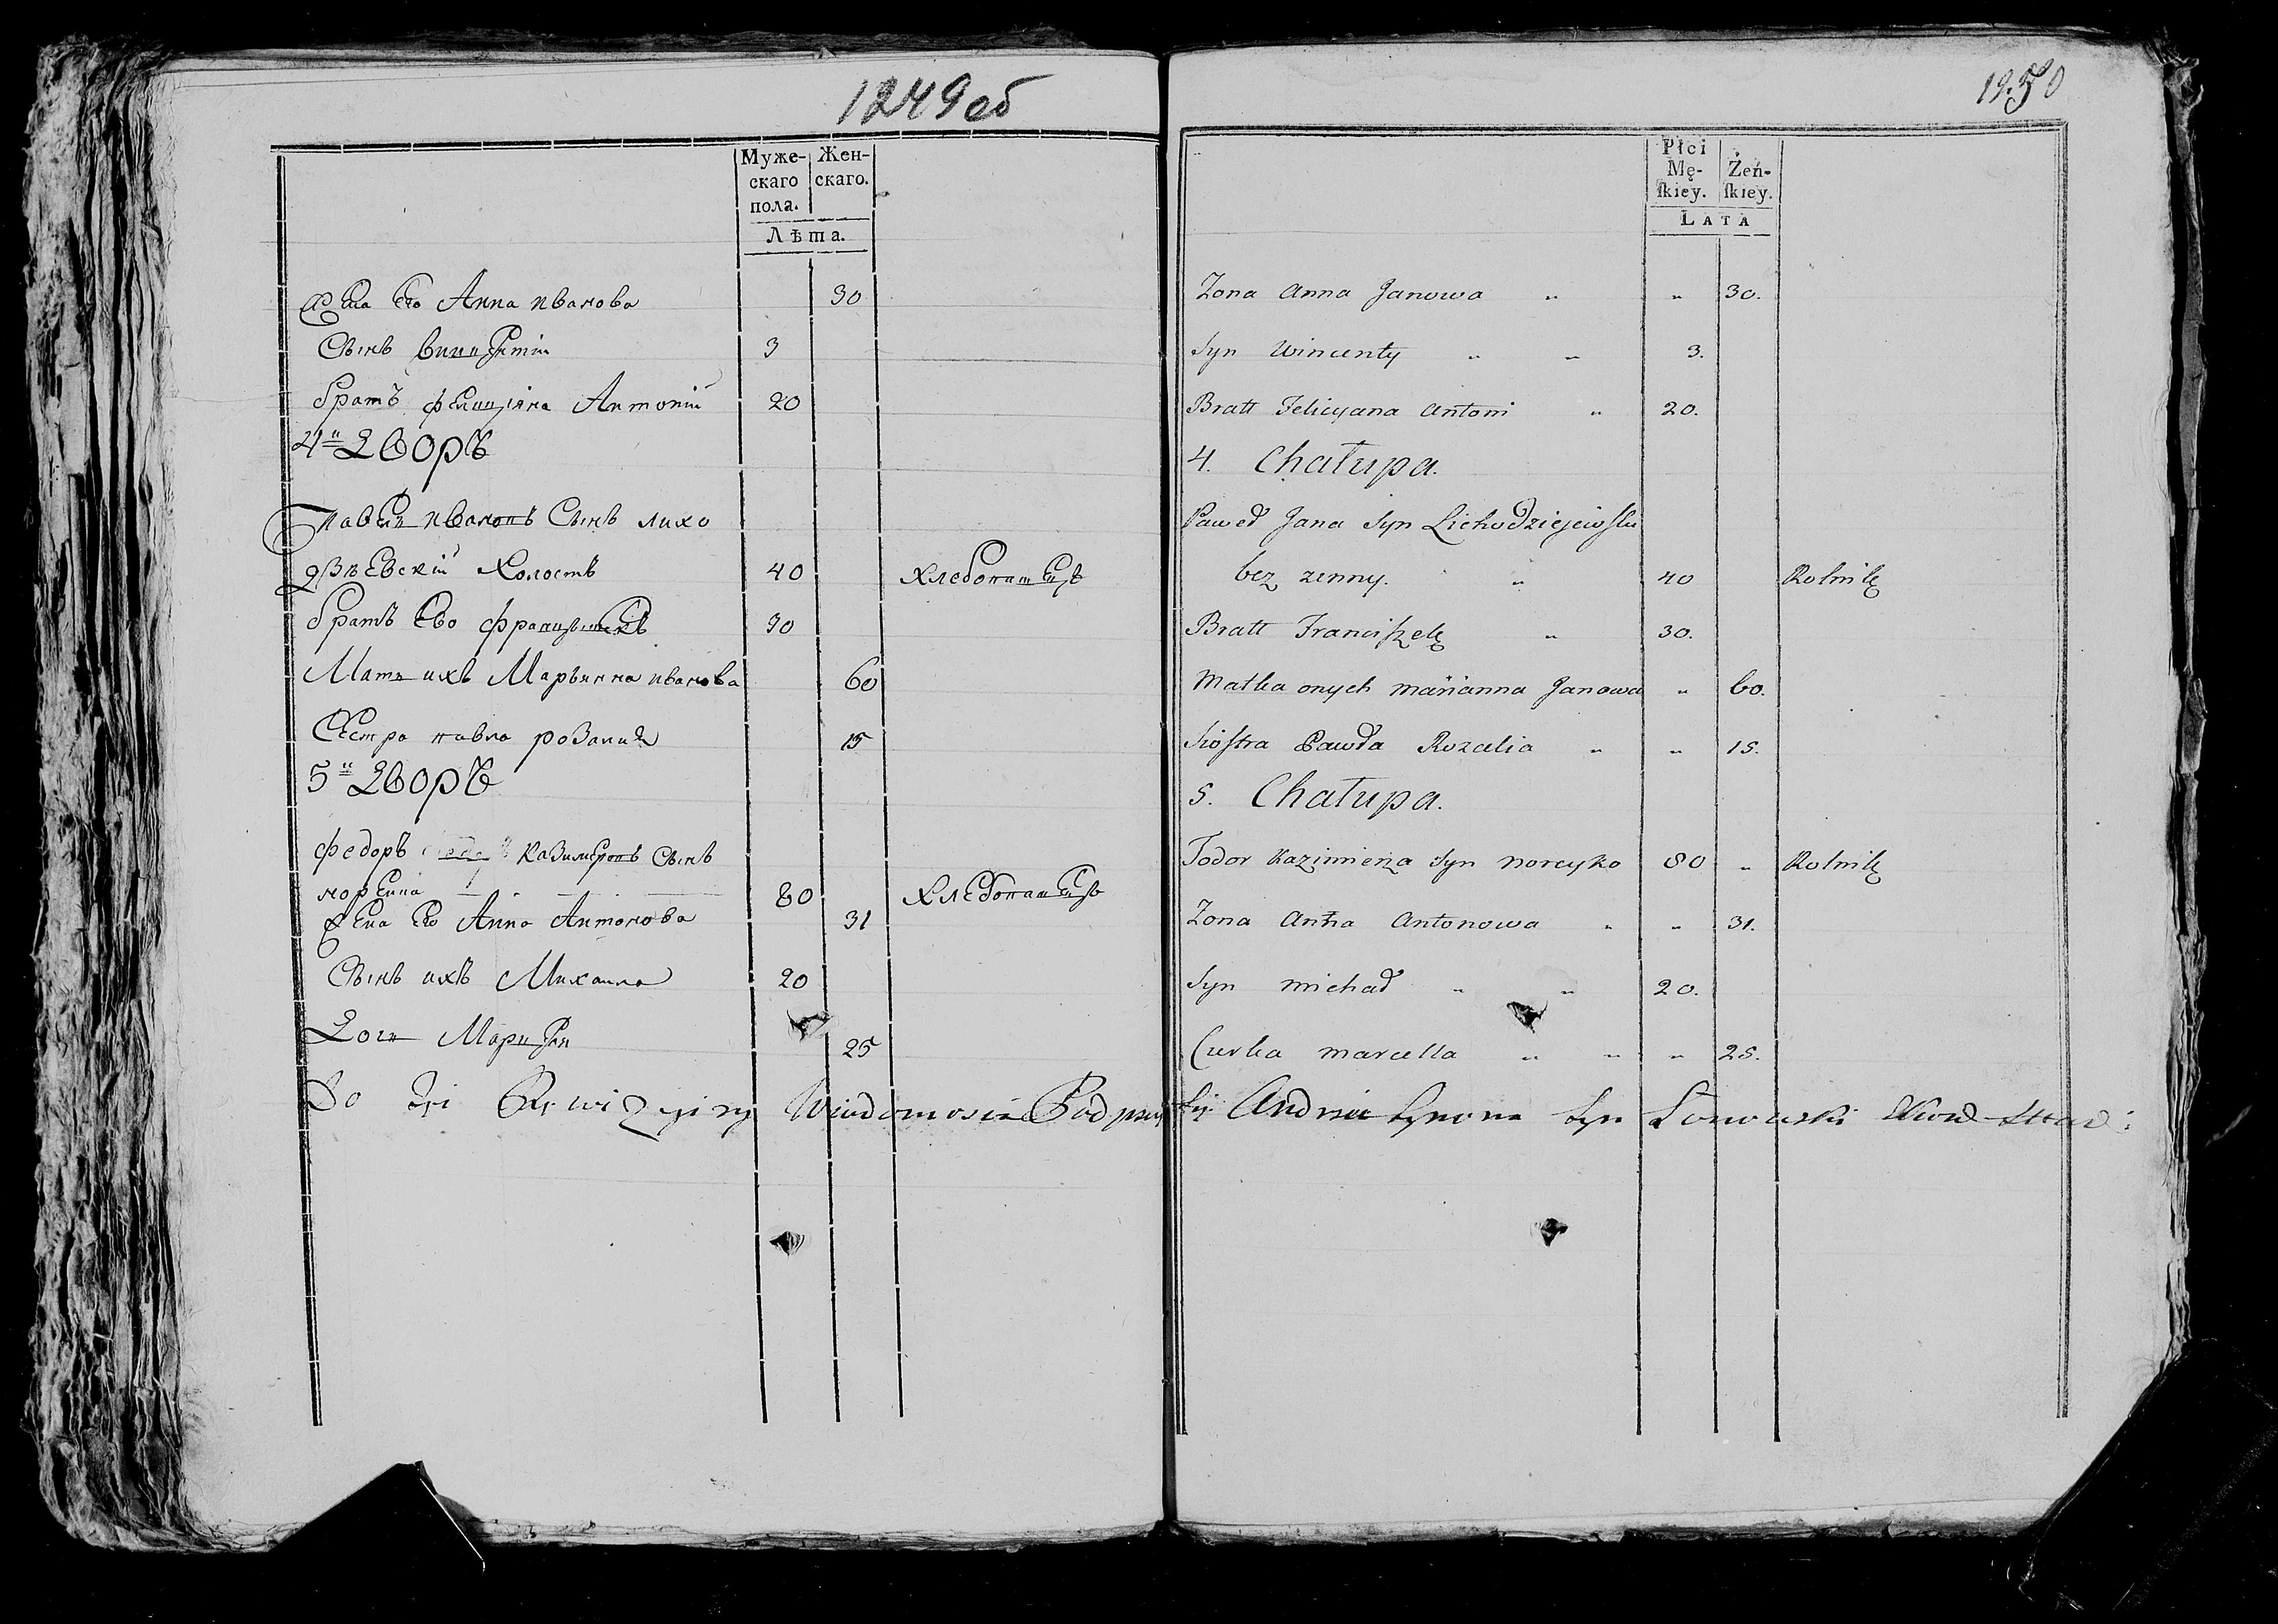 1249 об
Муже- Жен-
скаго скаго.
пола.
Лѣта.
Жена Его Анна иванова 30
Сынъ винцентiй 3
братъ фелицiяна Антонiй 20
4й Дворъ
павел ивановъ Сынъ лихо
дзѣевскiй Холостъ 40 Хлебопашецъ
братъ Ево францышекъ 30
Мать ихъ Марьянна иванова 60
Сестра павла розалия 15
5й Дворъ
федоръ казимеровъ Сынъ
80 Хлебопашецъ
Жена Ево Анна Антонова 31
Сынъ ихъ Михаила 20
Дочь 25
Płci
Mę- Żeń-
ſkiey. ſkiey.
LATA
Zona Anna Janowa " " 30.
Syn Wincenty " " 3.
Bratt Felicyana Antoni " 20.
4. Chałupa.
Paweł Jana Syn Lichodziejewſki
bez zenny. " 40 Rolnik
Bratt Franciſzek " 30.
Matka onych Marianna Janowa " 60.
Sioſtra Pawła Rozalia " " 15.
5. Chałupa.
Todor Kazimierza Syn Noreyko 80 " Rolnik
Zona Anna Antonowa " " 31.
Syn Michał " " 20.
Curka Marcella " " " 25.
Do Rewizyiny Wiadomoscie Andrzei Syn